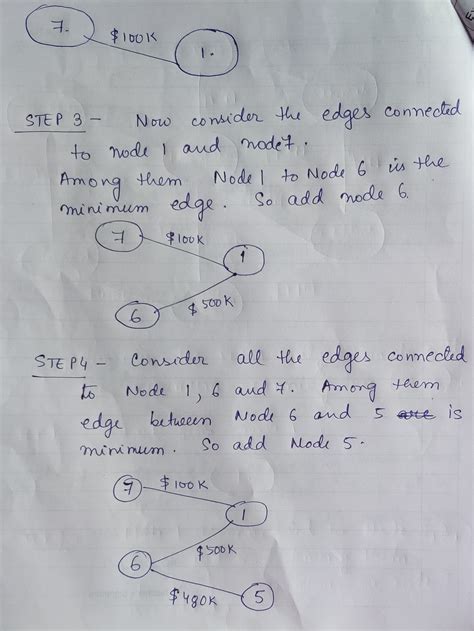 7.
$100K
1.
STEP 3 - Now consider the edges connected
to node 1 and node 7.
Among them Node 1 to Node 6 is the
minimum edge. So add node 6.
7
$100K
1
6
$500K
STEP 4 - Consider all the edges connected
to Node 1, 6 and 7. Among them
edge between Node 6 and 5 are is
minimum. So add Node 5.
7
$100K
1
6
$500K
$480K
5